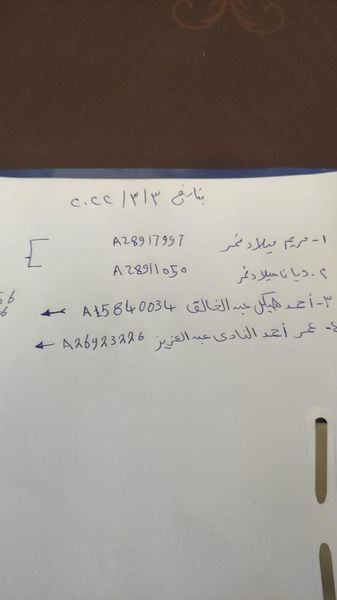 بتاريخ ٣/٣/٢٠٢٢
١- مريم ميلاد نمر A28917997
٢- ديانا ميلاد نمر A28911050
٣- أحمد هيكل عبد الخالق A15840034 ←
٤- عمر أحمد النادى عبد العزيز A26923226 ←